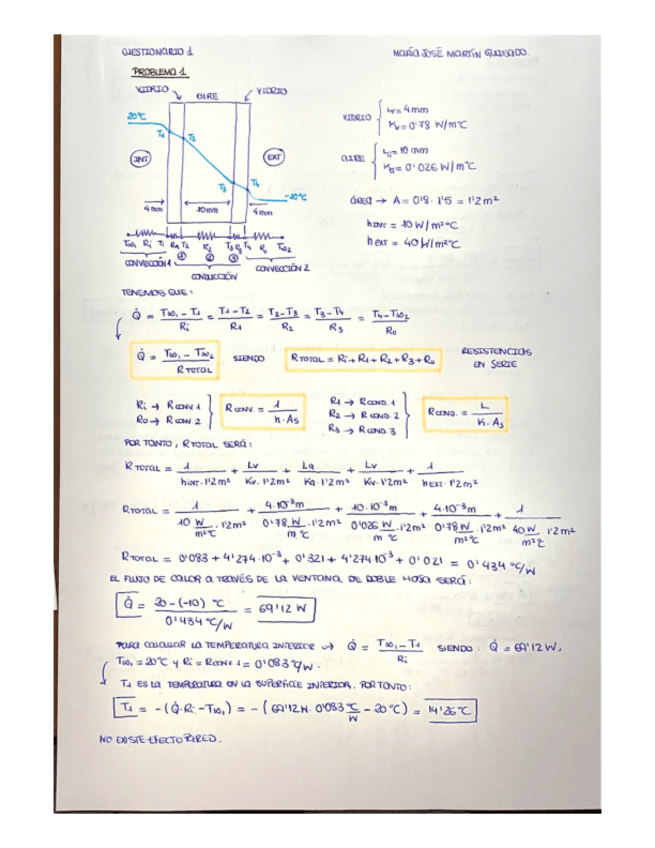 CUESTIONARIO 1
MARÍA JOSÉ MARTÍN
PROBLEMA 1
VIDRIO AIRE VIDRIO
20°C
T1 T2
INT EXT
T3 T4
-10°C
4mm 10mm 4mm
T∞1 Ri T1 R1 T2 R2 T3 R3 T4 Ro T∞2
CONVECCIÓN 1 ① ② ③ CONVECCIÓN 2
CONDUCCIÓN
VIDRIO { Lv = 4mm
Kv = 0'78 W/m°C
AIRE { La = 10 mm
Ka = 0'026 W/m°C
ÁREA → A = 0'8 · 1'5 = 1'2 m²
hINT = 10 W/m²°C
hEXT = 40 W/m²°C
TENEMOS QUE:
Q̇ = (T∞1 - T1)/Ri = (T1 - T2)/R1 = (T2 - T3)/R2 = (T3 - T4)/R3 = (T4 - T∞2)/Ro
Q̇ = (T∞1 - T∞2)/RTOTAL SIENDO RTOTAL = Ri + R1 + R2 + R3 + Ro RESISTENCIAS
EN SERIE
Ri → RCONV.1
Ro → RCONV.2
RCONV. = 1/(h · As)
R1 → RCOND.1
R2 → RCOND.2
R3 → RCOND.3
RCOND. = L/(K · As)
POR TANTO, RTOTAL SERÁ:
RTOTAL = 1/(hINT · 1'2m²) + Lv/(Kv · 1'2m²) + La/(Ka · 1'2m²) + Lv/(Kv · 1'2m²) + 1/(hEXT · 1'2m²)
RTOTAL = 1/(10 W/m²°C · 1'2m²) + 4·10⁻³m/(0'78 W/m°C · 1'2m²) + 10·10⁻³m/(0'026 W/m°C · 1'2m²) + 4·10⁻³m/(0'78 W/m°C · 1'2m²) + 1/(40 W/m²°C · 1'2m²)
RTOTAL = 0'083 + 4'274·10⁻³ + 0'321 + 4'274·10⁻³ + 0'021 = 0'434 °C/W
EL FLUJO DE CALOR A TRAVÉS DE LA VENTANA DE DOBLE HOJA SERÁ:
Q̇ = (20 - (-10) °C)/(0'434 °C/W) = 69'12 W
PARA CALCULAR LA TEMPERATURA INTERIOR → Q̇ = (T∞1 - T1)/Ri SIENDO: Q̇ = 69'12 W,
T∞1 = 20°C y Ri = RCONV.1 = 0'083 °C/W.
T1 ES LA TEMPERATURA EN LA SUPERFICIE INTERIOR. POR TANTO:
T1 = - (Q̇·Ri - T∞1) = - (69'12 W · 0'083 °C/W - 20°C) = 14'26°C
NO EXISTE EFECTO PARED.